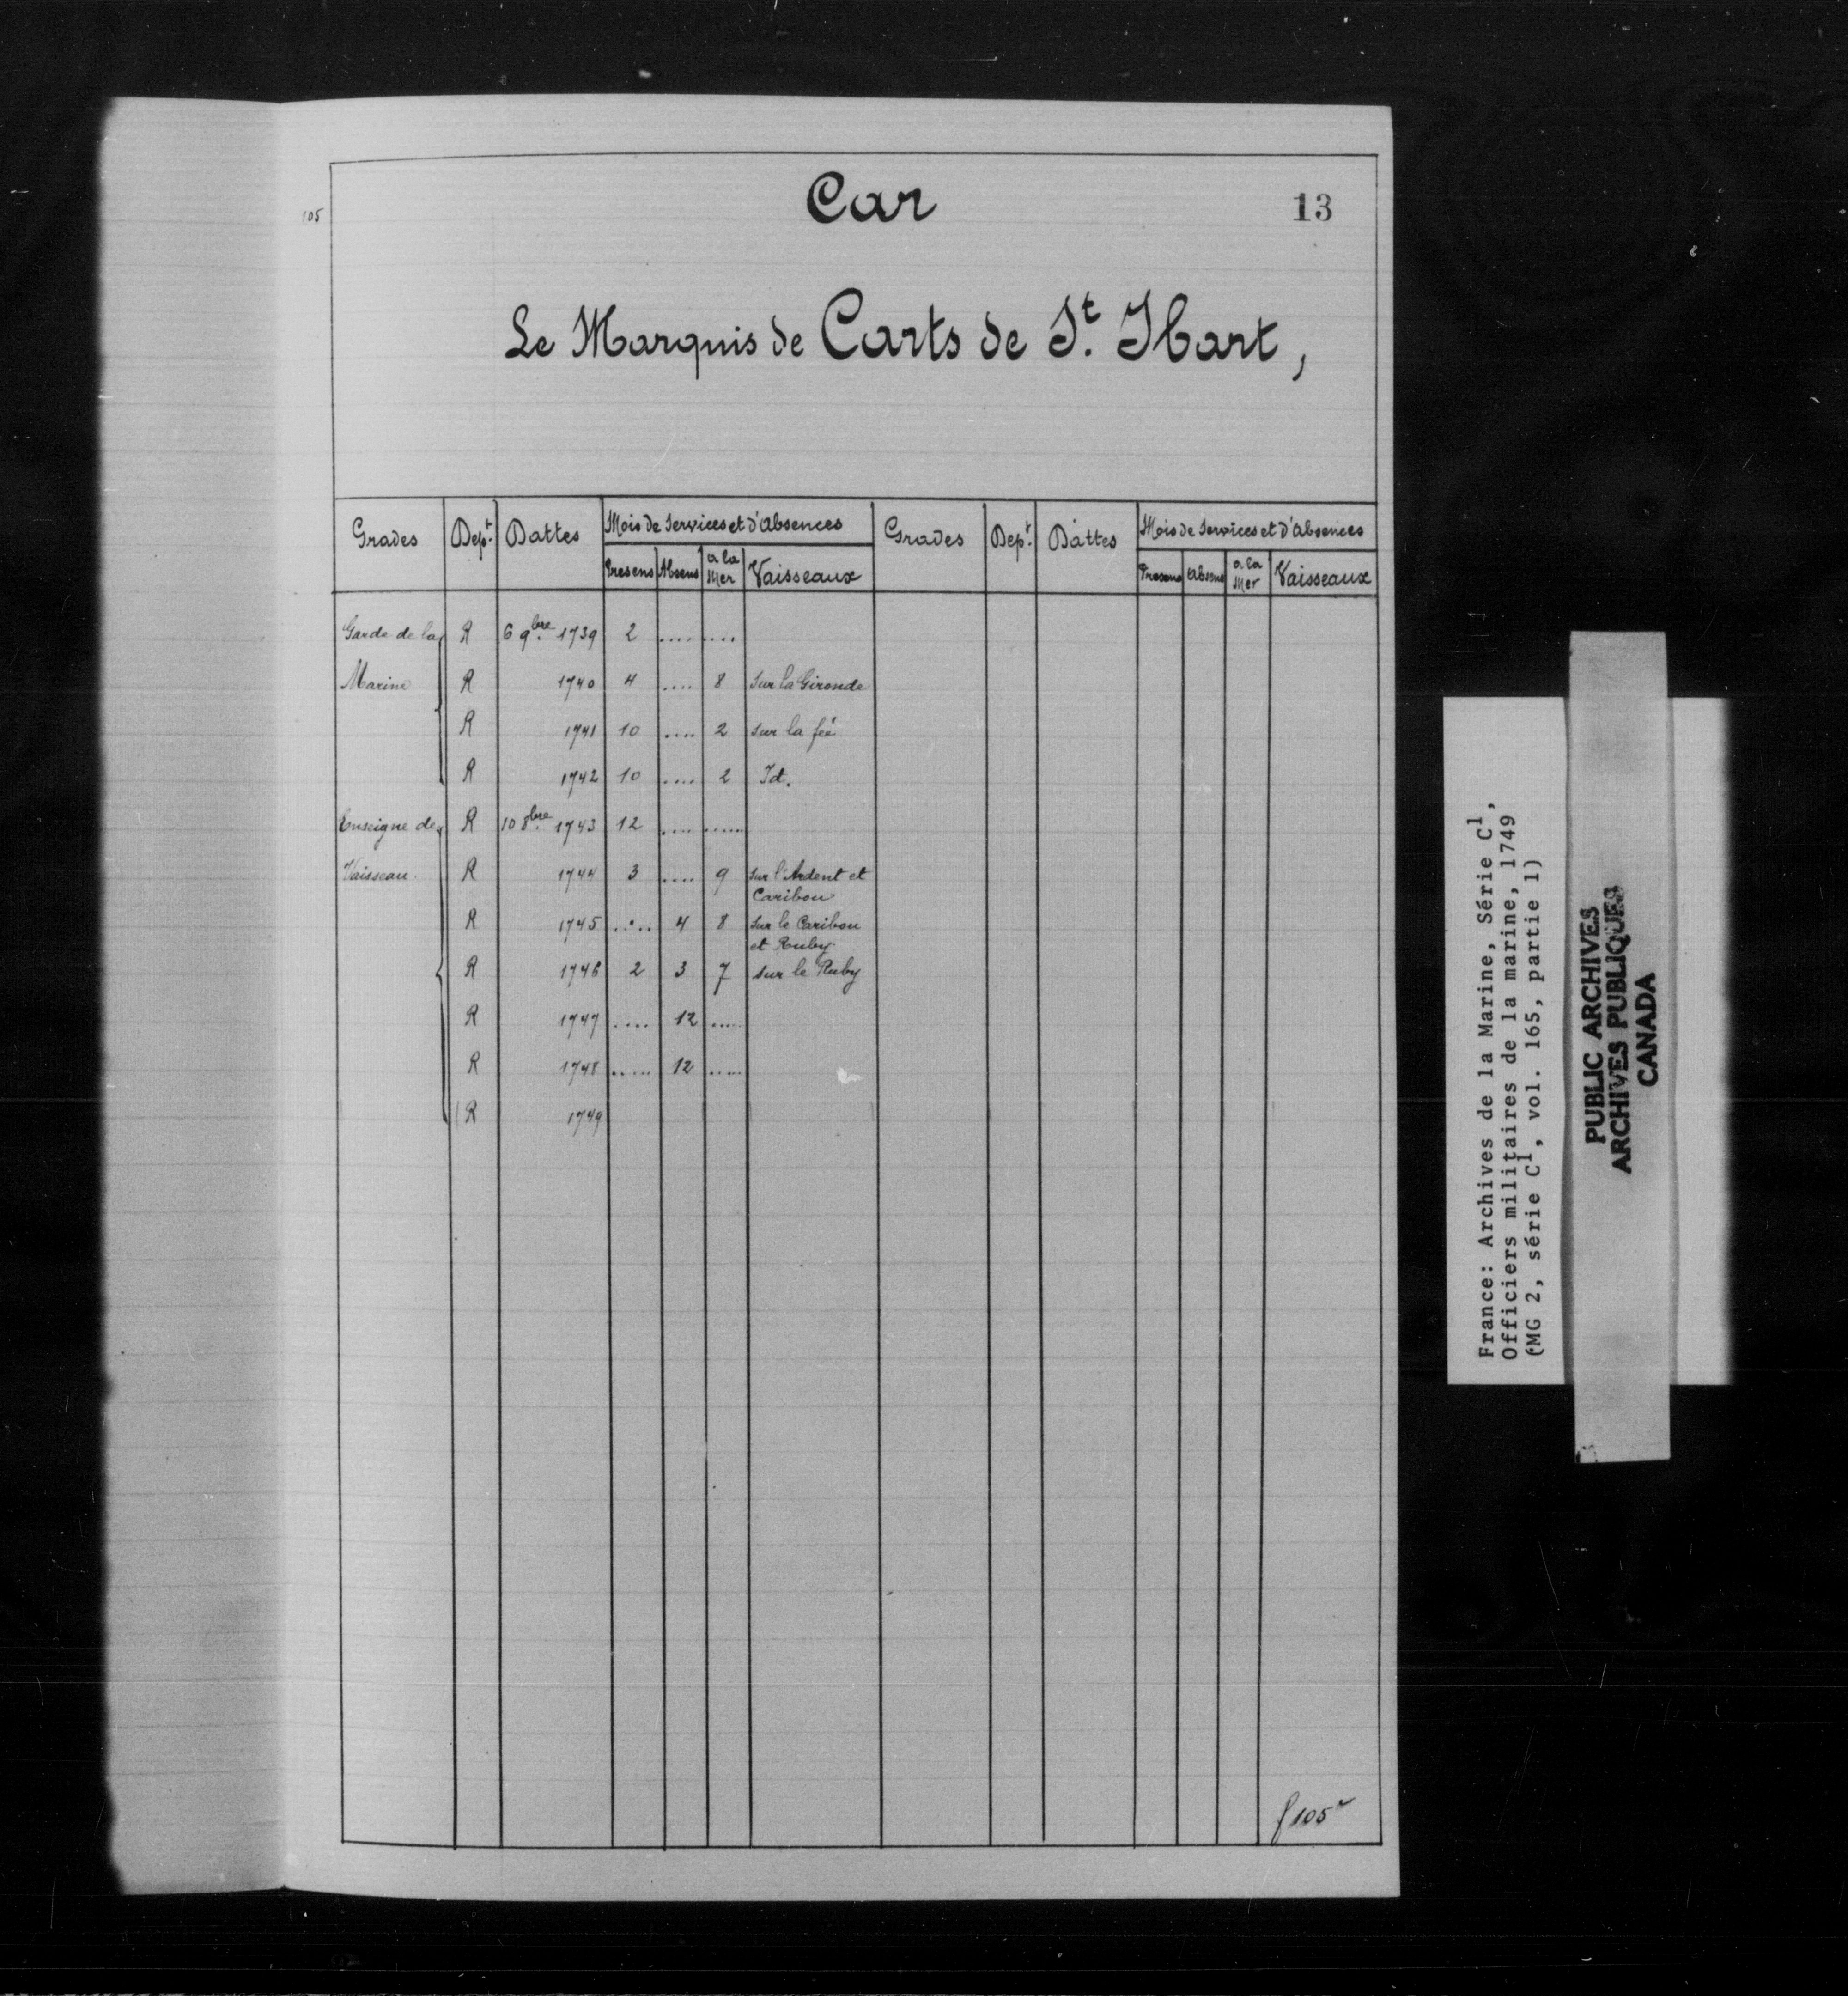 105
Car
13
Le Marquis de Carts de St. Ibart,
Grades Dept. Dattes Mois de Services et d'Absences Grades Dept. Dattes Mois de Services et d'Absences
Presens Absens a la Mer Vaisseaux Presens Absens a la Mer Vaisseaux
Garde de la R 6 9bre. 1739 2 .... ....
Marine R 1740 4 .... 8 sur la Gironde
R 1741 10 .... 2 sur la feé
R 1742 10 .... 2 Id.
Enseigne de R 10 8bre. 1743 12 .... ......
Vaisseau. R 1744 3 .... 9 sur l'Ardent et
Caribou
R 1745 .... 4 8 sur le Caribou
et Ruby.
R 1746 2 3 7 sur le Ruby
R 1747 .... 12 .....
R 1748 ..... 12 .....
R 1749
f 105
France: Archives de la Marine, Série C1,
Officiers militaires de la marine, 1749
(MG 2, série C1, vol. 165, partie 1)
PUBLIC ARCHIVES
ARCHIVES PUBLIQUES
CANADA